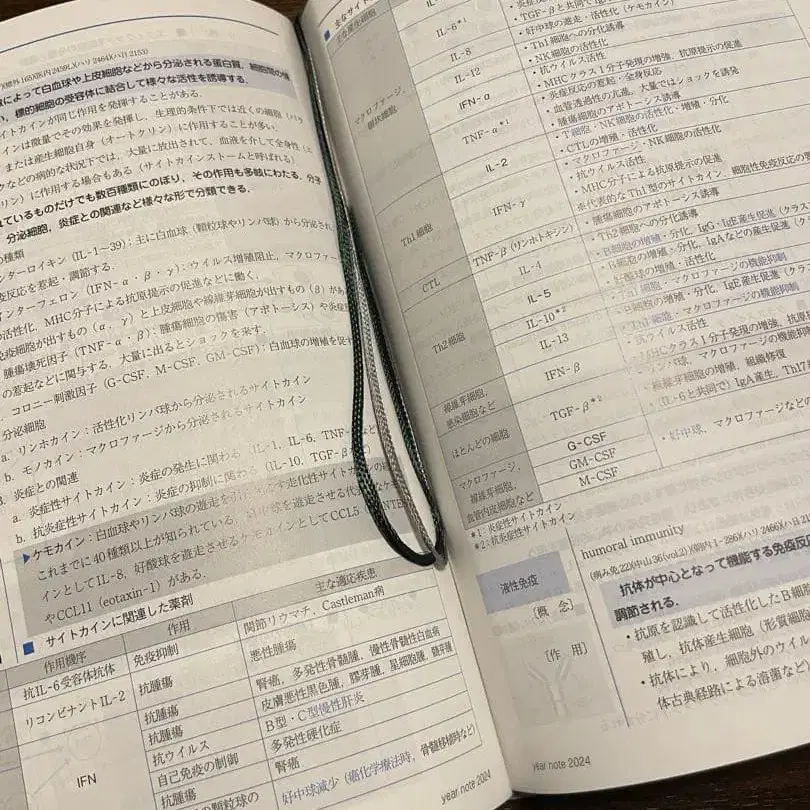 )(標外 165)(医内 2459)(ハリ 2464)(ハ日 2153)
によって白血球や上皮細胞などから分泌される蛋白質．細胞間の情
い，標的細胞の受容体に結合して様々な活性を誘導する．
イトカインが同じ作用を発揮することがある．
インは微量でその効果を発揮し，生理的条件下では近くの細胞（パラ
または産生細胞自身（オートクリン）に作用することが多い．
クなどの病的な状況下では，大量に放出されて，血液を介して全身性（エ
リン）に作用する場合もある（サイトカインストームと呼ばれる）
れているものだけでも数百種類にのぼり，その作用も多岐にわたる．分子
分泌細胞，炎症との関連など様々な形で分類できる．
の種類
ンターロイキン（IL-1～39）：主に白血球（顆粒球やリンパ球）から分泌され
疫反応を惹起・調節する．
インターフェロン（IFN-α・β・γ）：ウイルス増殖阻止，マクロファー
の活性化，MHC分子による抗原提示の促進などに働く．
免疫細胞が出すもの（α，γ）と上皮細胞や線維芽細胞が出すもの（β）があ
腫瘍壊死因子（TNF-α・β）：腫瘍細胞の傷害（アポトーシス）や炎症
の惹起などに関与する．大量に出るとショックを来す．
コロニー刺激因子（G-CSF，M-CSF，GM-CSF）：白血球の増殖を促す
分泌細胞
a．リンホカイン：活性化リンパ球から分泌されるサイトカイン
b．モノカイン：マクロファージから分泌されるサイトカイン
3．炎症との関連
a．炎症性サイトカイン：炎症の発生に関わる（IL-1，IL-6，TNF-
b．抗炎症性サイトカイン：炎症の抑制に関わる（IL-10，TGF-β
▶ケモカイン：白血球やリンパ球の遊走を引 走化性サイトカインの
これまでに40種類以上が知られている． 球を遊走させる代表的なケ
インとしてIL-8，好酸球を遊走させるケモカインとしてCCL5
やCCL11（eotaxin-1）がある．
■ サイトカインに関連した薬剤
作用機序 作用 主な適応疾患
抗IL-6受容体抗体 免疫抑制 関節リウマチ，Castleman病
リコンビナントIL-2 抗腫瘍 悪性腫瘍
IFN 抗腫瘍 腎癌，多発性骨髄腫，慢性骨髄性白血病
抗腫瘍 皮膚悪性黒色腫，膠芽腫，星細胞腫，髄芽腫
抗ウイルス B型・C型慢性肝炎
自己免疫の制御 多発性硬化症
抗腫瘍 腎癌
の顆粒球の 好中球減少（癌化学療法時，骨髄移植時など）
year note 2024
主なサイト
主な産生細胞
マクロファージ，
樹状細胞
IL-6*1
・TGF-βと共同で
IL-8
・好中球の遊走・活性化（ケモカイン）
IL-12
・Th1細胞への分化誘導
・NK細胞の活性化
IFN-α
・抗ウイルス活性
・MHCクラス1分子発現の増強，抗原提示の促
TNF-α*1
・炎症反応の惹起・全身反応
・血管透過性の亢進，大量ではショックを誘発
・腫瘍細胞のアポトーシス誘導
Th1細胞
IL-2
・T細胞・NK細胞の活性化・増殖・分化
・CTLの増殖・活性化
IFN-γ
・マクロファージ・NK細胞の活性化
・抗ウイルス活性
・MHC分子による抗原提示の促進
※代表的なTh1型のサイトカイン．細胞性免疫反応の
CTL
TNF-β（リンホトキシン）
・腫瘍細胞のアポトーシス誘導
Th2細胞
IL-4
・Th2細胞への分化誘導
・B細胞の増殖・分化，IgG・IgE産生促進（クラス
IL-5
・B細胞の増殖・分化，IgAなどの産生促進（ク
・好酸球の増殖・活性化
IL-10*2
・Th1細胞・マクロファージの機能抑制
IL-13
・B細胞の増殖・分化，IgE産生促進（クラ
・Th1細胞・マクロファージの機能抑制
線維芽細胞，
感染細胞など
IFN-β
・抗ウイルス活性
・MHCクラス1分子発現の増強，抗原
ほとんどの細胞
TGF-β*2
・リンパ球，マクロファージの機能抑
・線維芽細胞の増殖，組織修復
・（IL-6と共同で）IgA産生，Th17
マクロファージ，
線維芽細胞，
血管内皮細胞など
G-CSF
GM-CSF
M-CSF
・好中球，マクロファージなどの
*1：炎症性サイトカイン
*2：抗炎症性サイトカイン
液性免疫
humoral immunity
(病み免 22)(中山 36(vol.2))(朝内 I-286)(ハリ 2466)(ハ日 21
［概 念］
抗体が中心となって機能する免疫反応
調節される．
［作 用］
・抗原を認識して活性化したB細胞
殖し，抗体産生細胞（形質細胞
・抗体により，細胞外のウイル
体古典経路による溶菌など
year note 2024